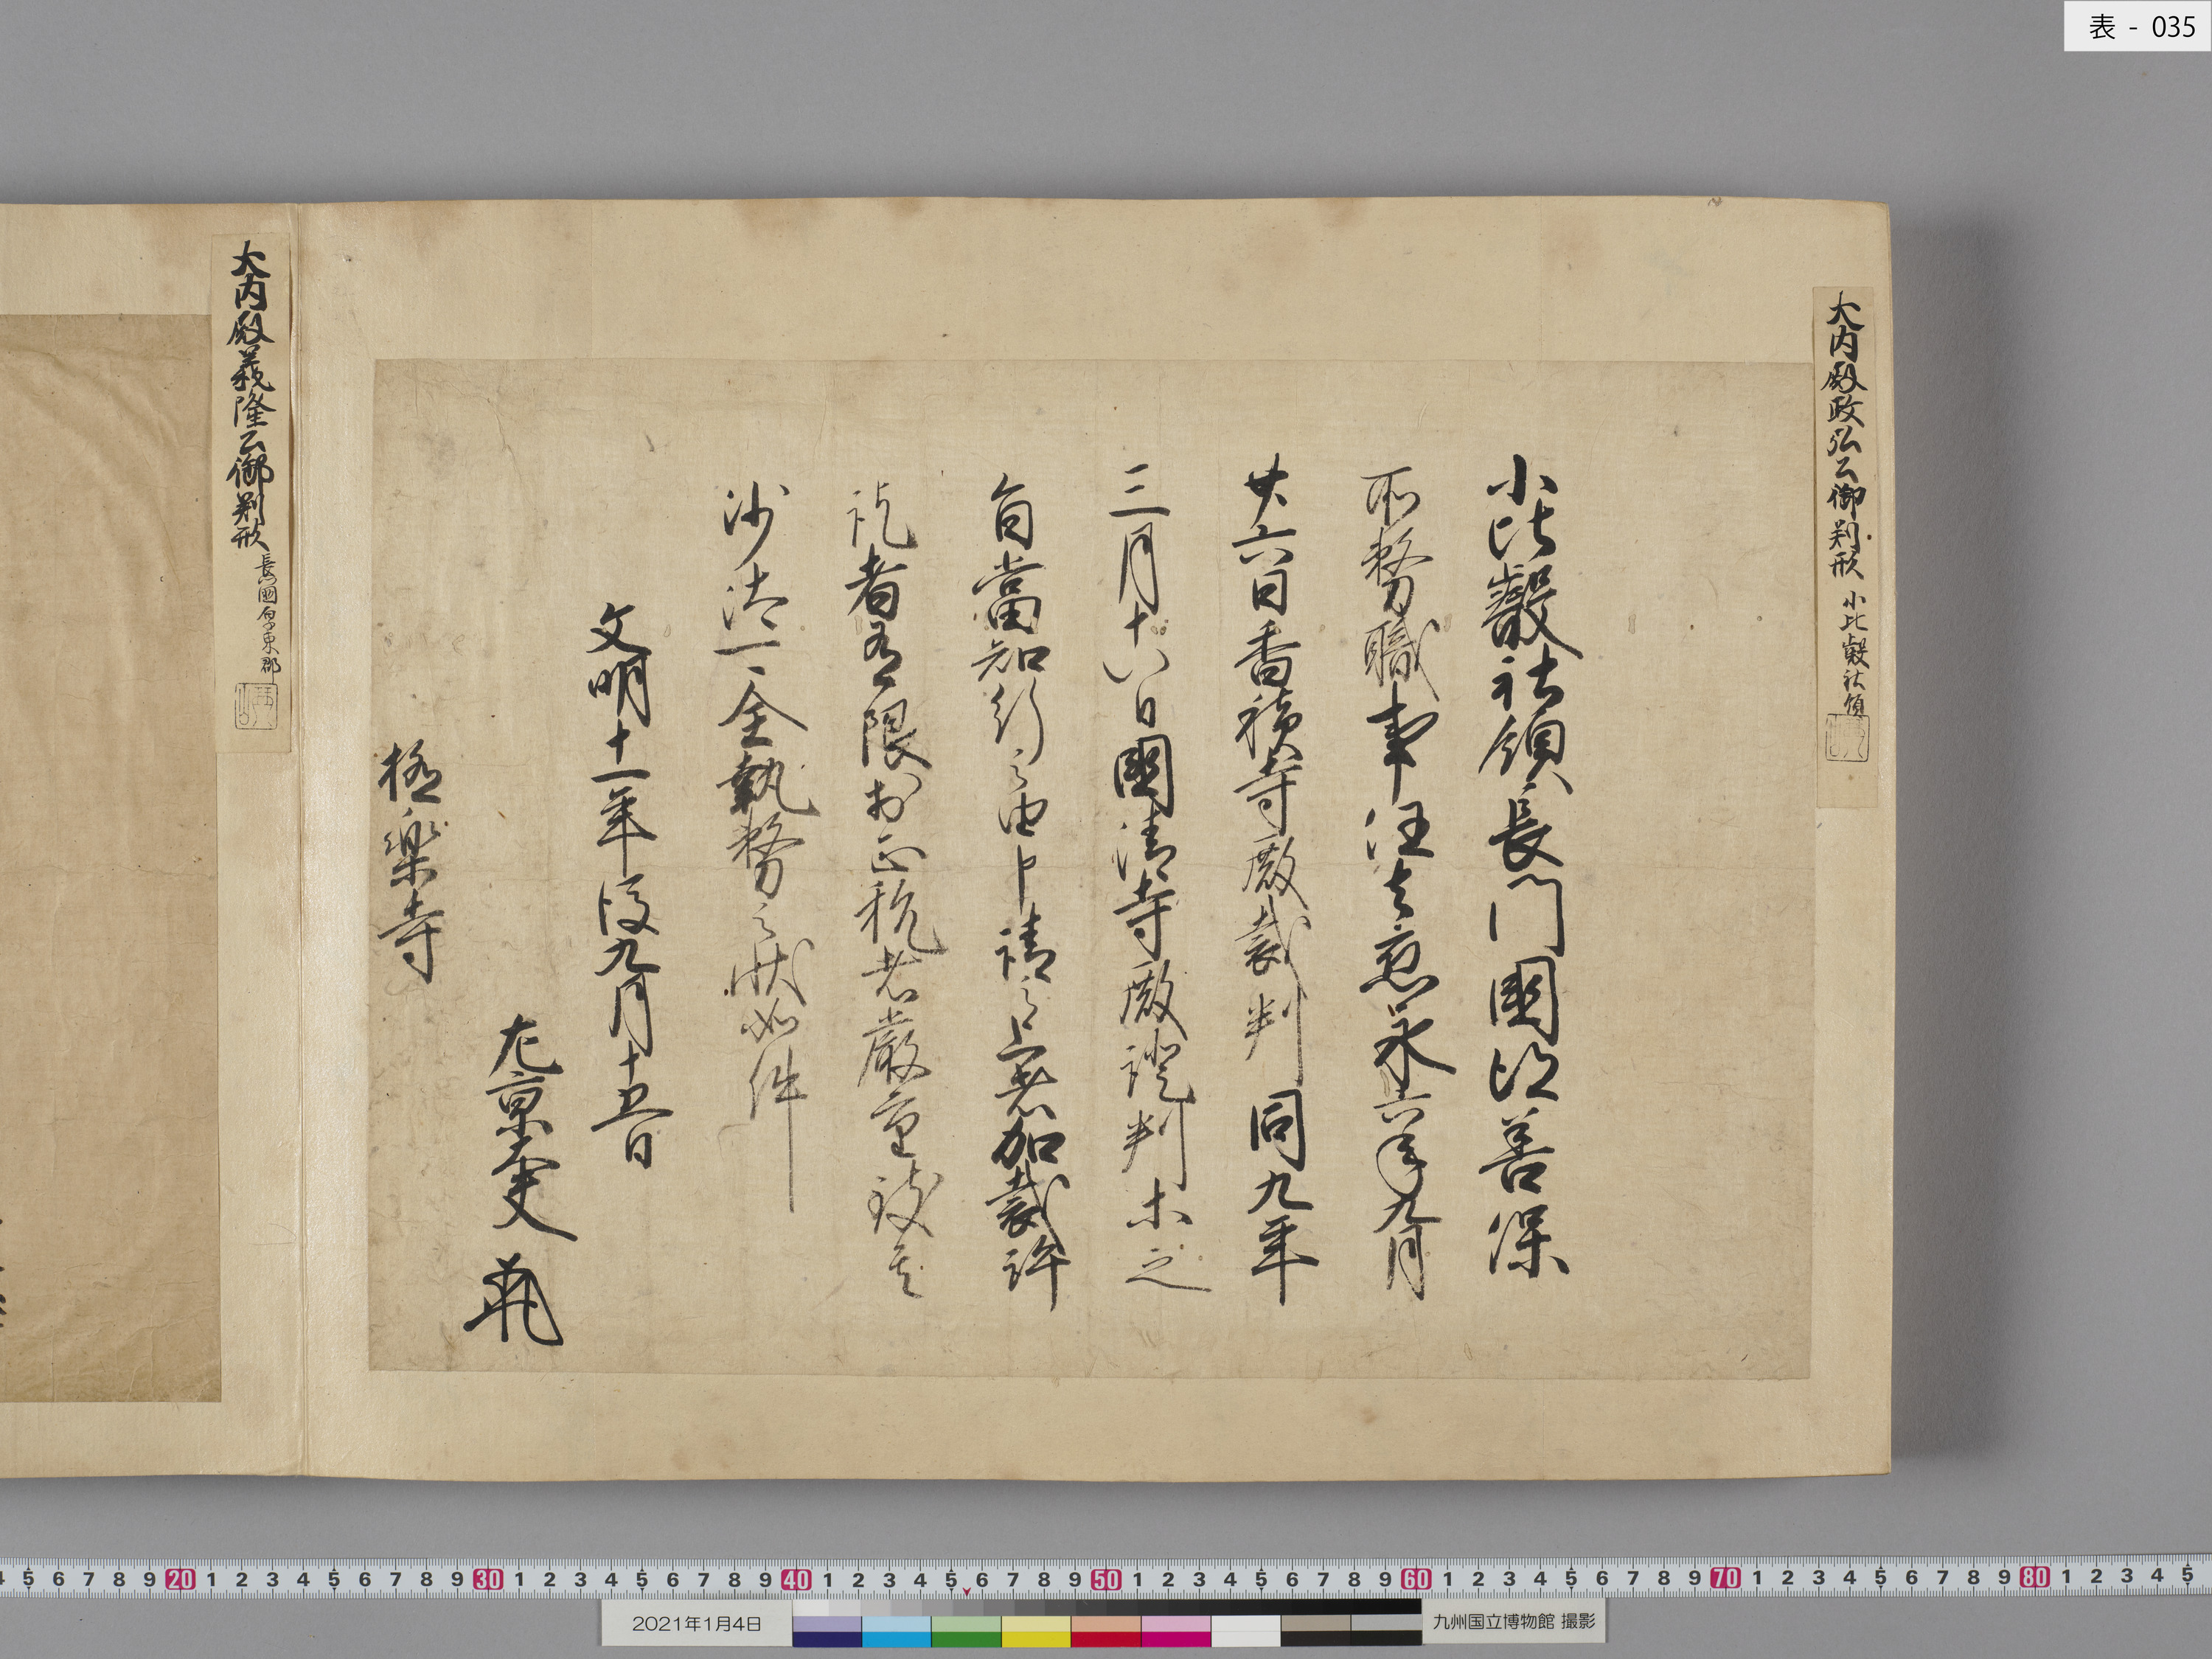 表 - 035
大内殿政弘公御判形 小比叡社領
小比叡社領長門國善保
所務職事任去應永六年九月
廿六日香積寺殿裁判同九年
三月十八日國清寺殿證判等之
旨當知行之由申請之加裁許
訖者有限於正税者嚴重致其
沙汰可全執務之状如件
文明十一年後九月十五日
左京大夫
極楽寺
大内殿義隆公御判形 長門國厚東郡
2021年1月4日
九州国立博物館 撮影